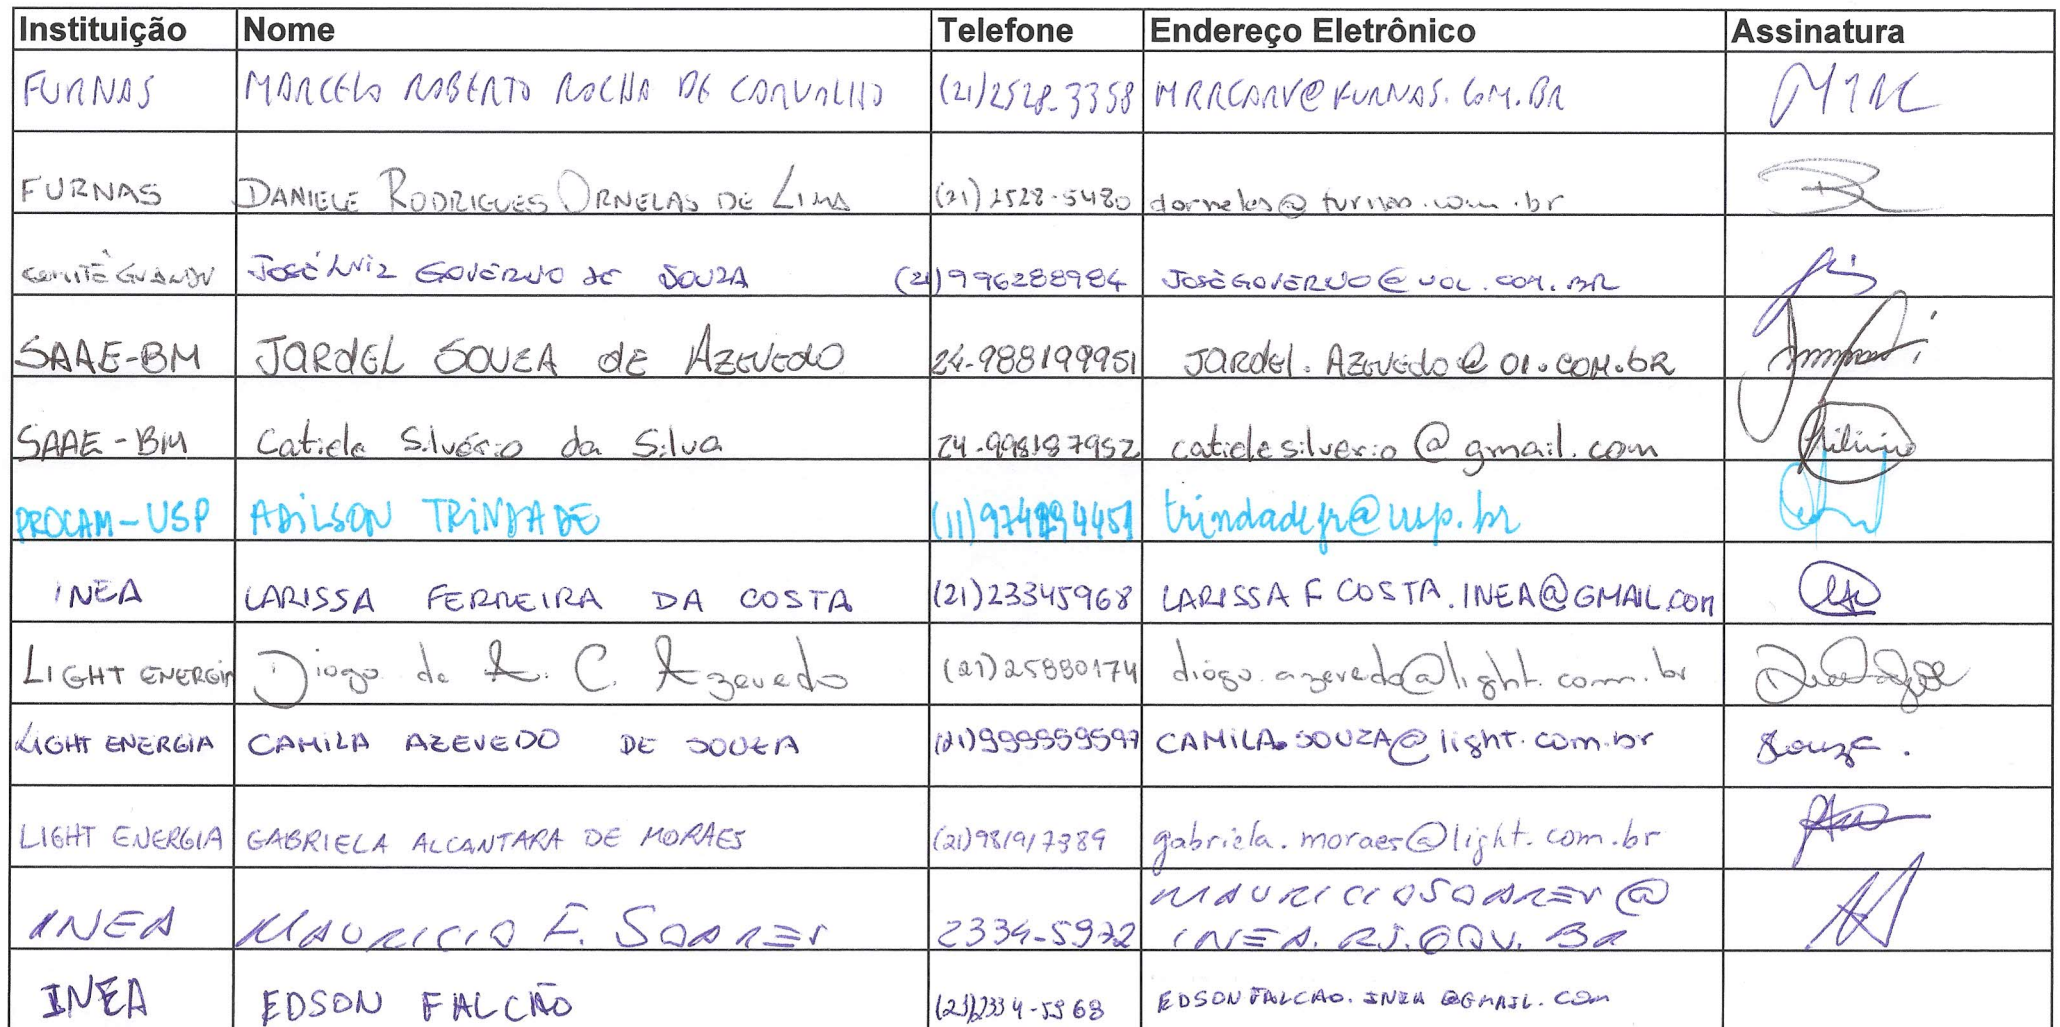 Instituição Nome Telefone Endereço Eletrônico Assinatura
FURNAS MARCELO ROBERTO ROCHA DE CARVALHO (21)2528-3358 MRRCARV@FURNAS.COM.BR
FURNAS DANIELE RODRIGUES ORNELAS DE LIMA (21)2528-5480 dorneles@furnas.com.br
COMITÊ GUANDU JOSÉ LUIZ GOVERNO DE SOUZA (21)996288984 JOSEGOVERNO@UOL.COM.BR
SAAE-BM JARDEL SOUZA dE AZEVEDO 24-988199951 JARDEL.AZEVEDO@OI.COM.bR
SAAE-BM Catiele Silvério da Silva 24-998187952 catielesilverio@gmail.com
PROCAM-USP ADILSON TRINDADE trindadejr@usp.br
INEA LARISSA FERREIRA DA COSTA (21)23345968 LARISSA F COSTA.INEA@GMAIL.COM
LIGHT ENERGIA Diogo de A. C. Azevedo (21)25880174 diogo.azevedo@light.com.br
LIGHT ENERGIA CAMILA AZEVEDO DE SOUZA CAMILA.SOUZA@light.com.br Souza.
LIGHT ENERGIA GABRIELA ALCANTARA DE MORAES (21)981917389 gabriela.moraes@light.com.br
INEA MAURICIO F. SOARES 2334-5972 MAURICIOSOARES@
INEA.RJ.GOV.BR
INEA EDSON FALCÃO (21)2334-5968 EDSONFALCAO.INEA@GMAIL.COM